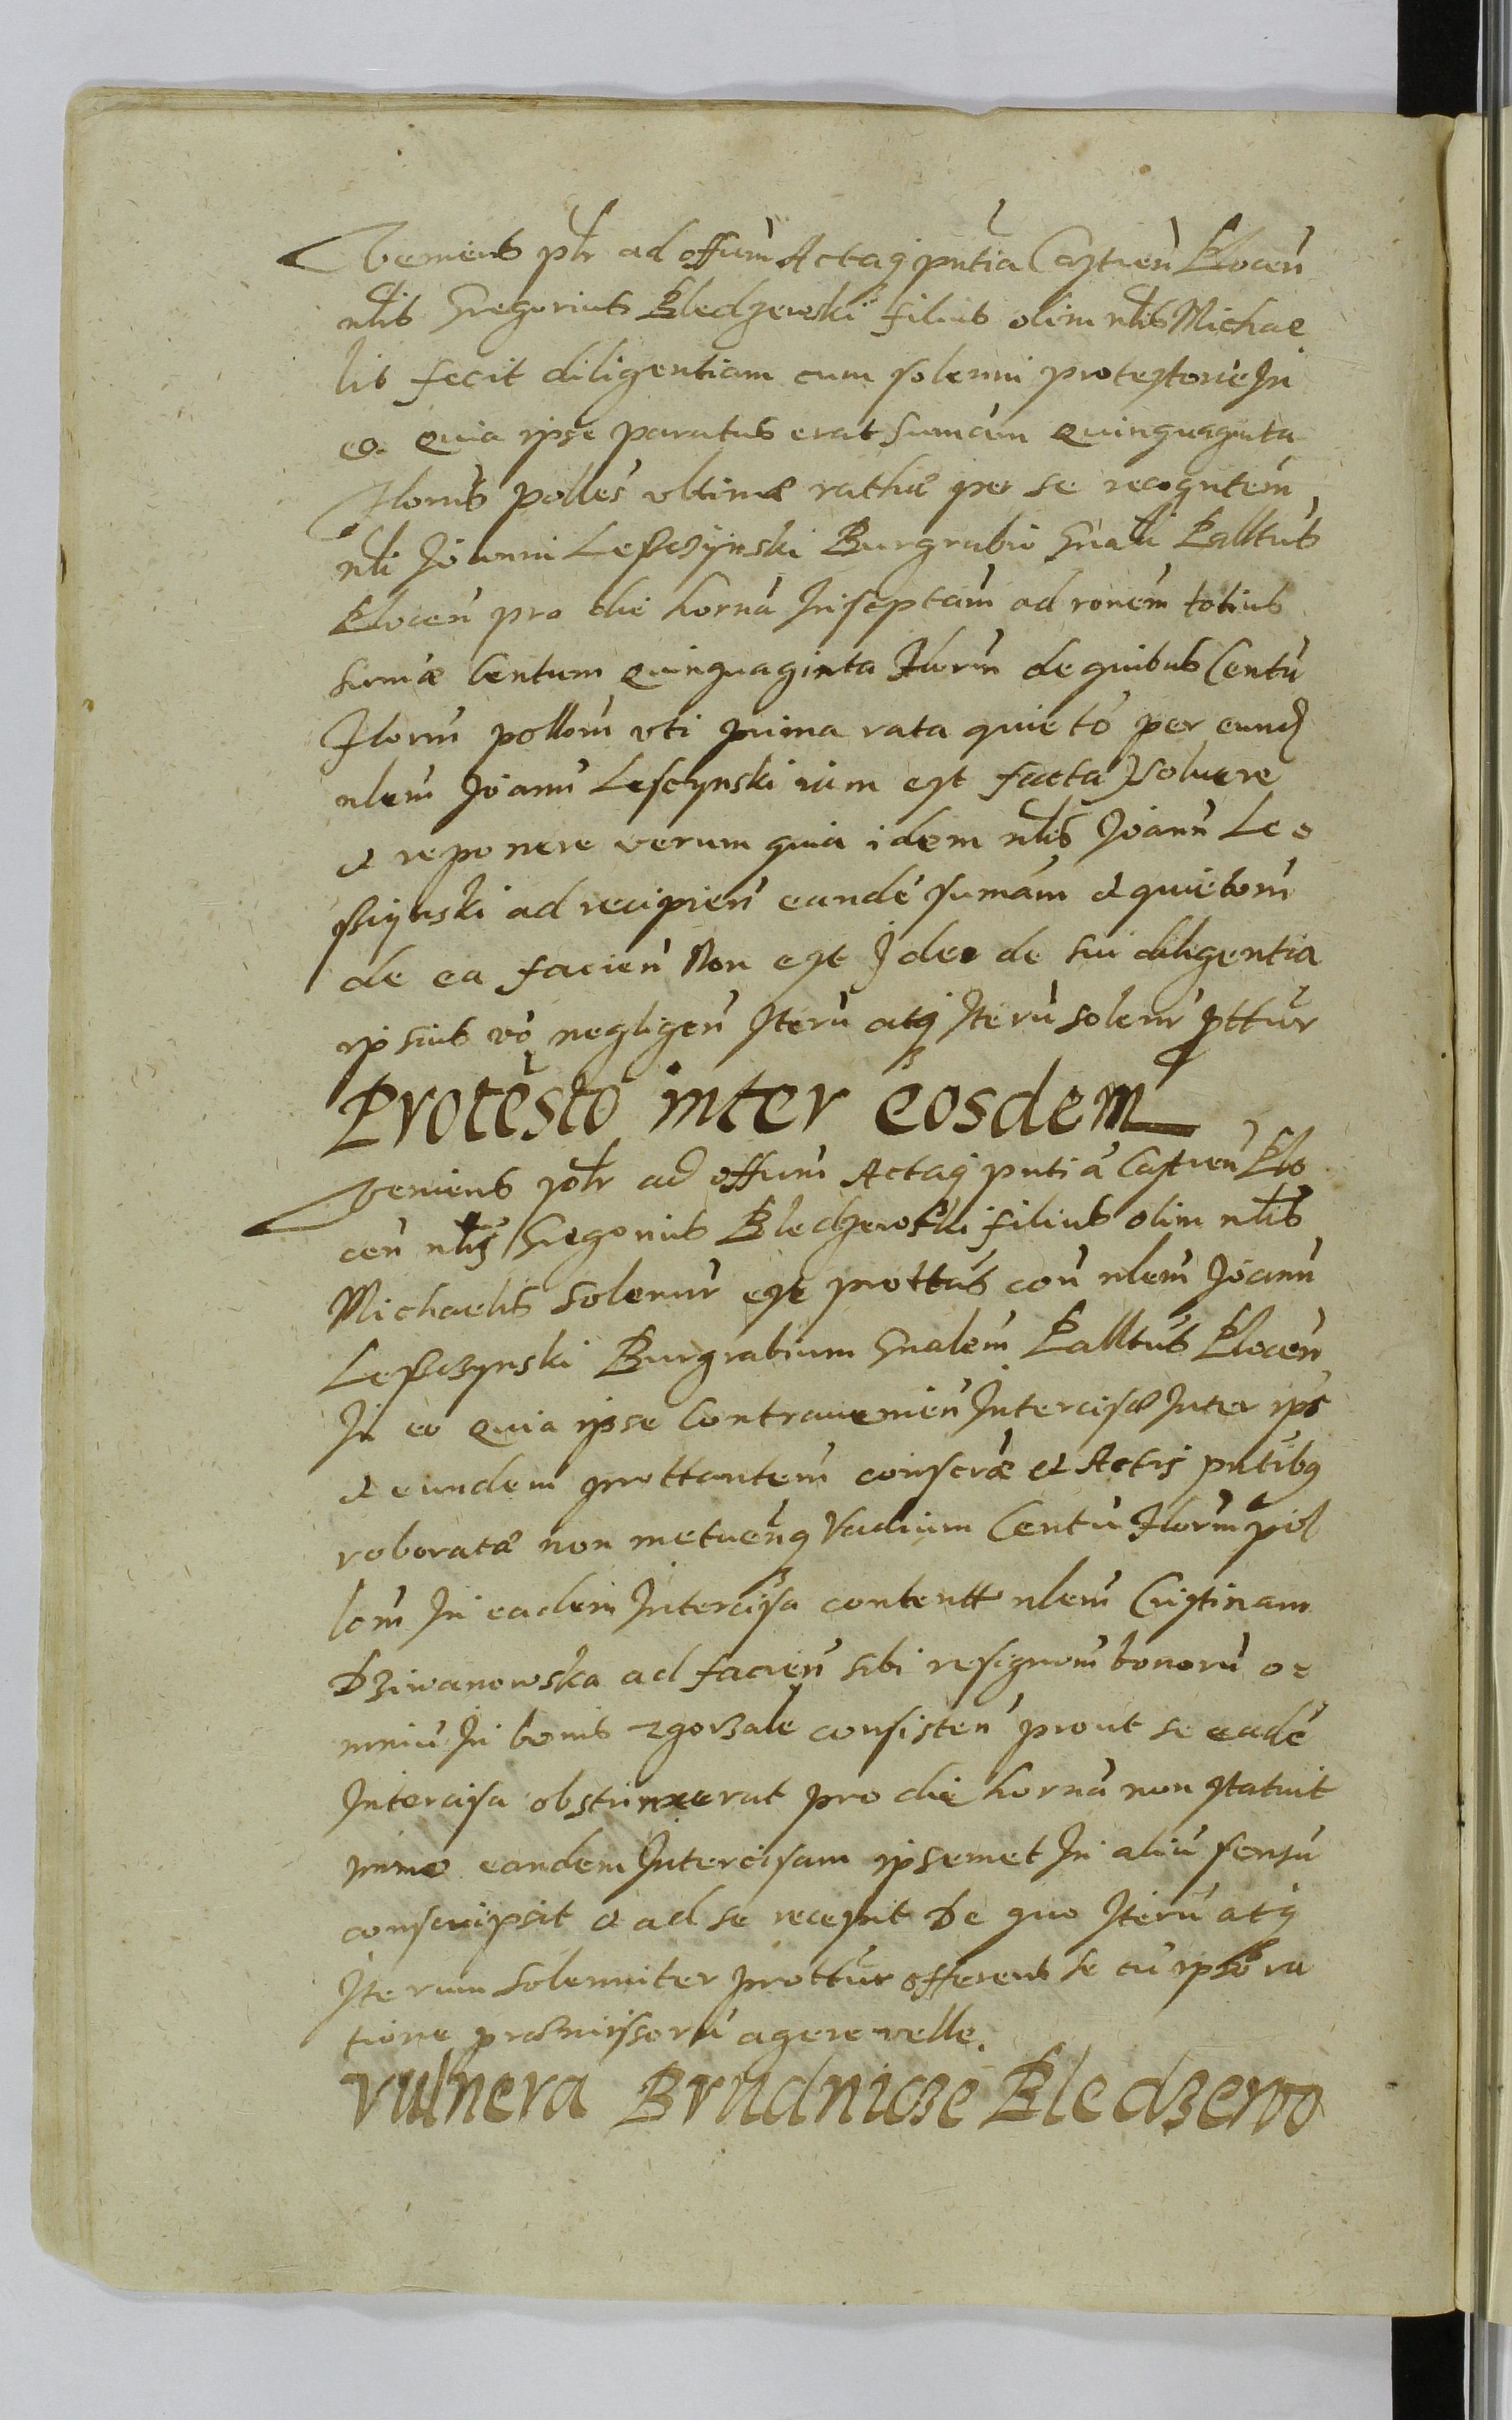 Veniens pltr ad offum Actaq pntia Castren Plocen
nlis Gregorius Bledzewski filius olim nlis Michae
lis fecit diligentiam cum solemni protestone In
eo. Quia ipse paratus erat sumam Quinquaginta
Florens polles ultimæ rathæ per se recogntem
nli Joanni Lesczÿnski Burgrabio Gnali Palltus
Plocen pro die horna Inscptam ad ronem totius
sumæ Centum Quinquaginta Florm de quibus Centu
Florm pollom uti prima rata quieto per eund
nlem Joann Lesczynski iam est facta) solvere
et reponere verum quia idem nlis Joann Le=
sciynski ad recipien eande sumam et quietom
de ea facien Non est Ideo de sui diligentia
ipsius vo negligen Iteru atq Iteru solenr pttur
Protesto inter eosdem
Veniens pltr ad offum Actaq pntia Castren Plo
cen nlis Gregorius Bledzewski filius olim nlis
Michaelis solenir est prottus con nlem Joann
Lesczynski Burgrabium Gnalem Palltus Plocen
In eo Quia ipse Contravenien Intercisæ Inter ips
et eundem prottantem conscræ et Actis pntibq
roboratæ non metuenq Vadium Centu Florm pol
lom In eadem Intercisa contentt nlem Cristinam
Dziwanowska ad facien sibi resignom bonoru o=
mniu In bonis Zgorzale consisten prout se eade
Intercisa obstrinxerat pro die horna non statuit
immo eandem Intercisam ipsemet In aliu sensu
conscripsit et ad se recepit De quo Iteru atq
Iterum solenniter prottur offerens se cu ipso ra
tione præmissoru agere velle.
Vulnera Brudnicze Bledzewo